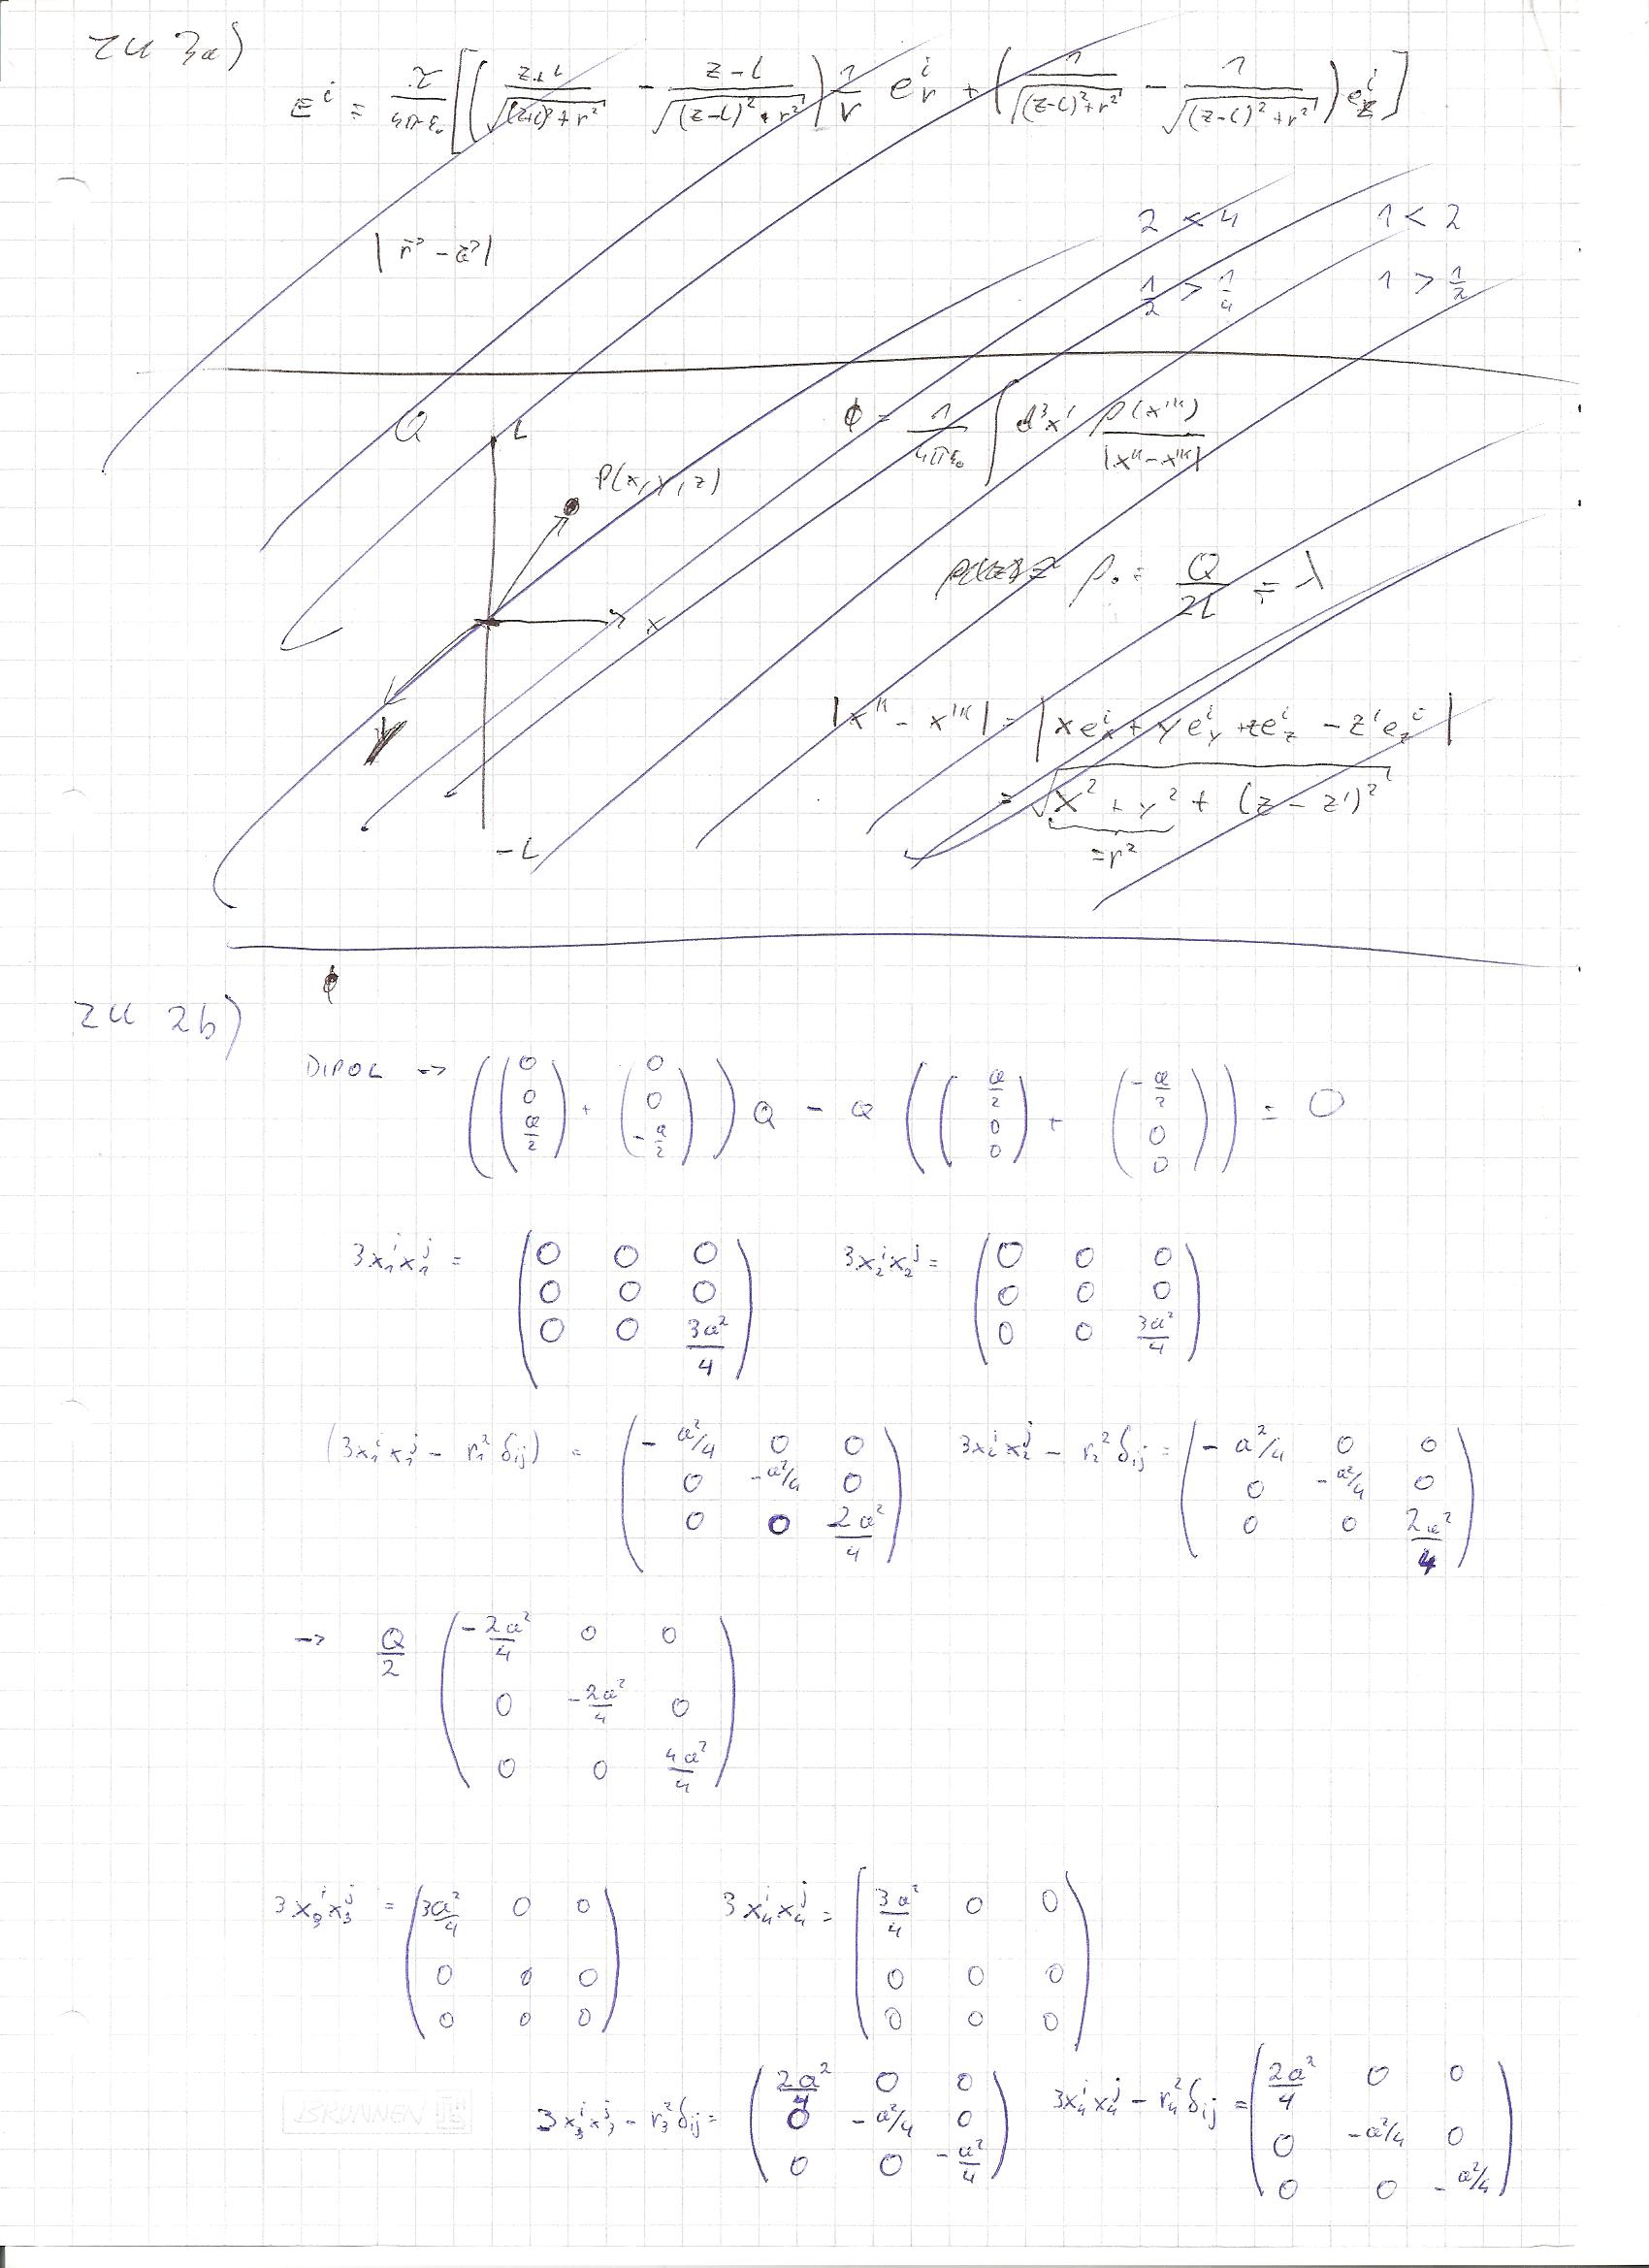 zu 3a)
E^i = τ/(4πε₀) [ ( (z+L)/√((z+L)²+r²) - (z-L)/√((z-L)²+r²) ) 1/r e_r^i + ( 1/√((z-L)²+r²) - 1/√((z-L)²+r²) ) e_z^i ]
2 < 4 1 < 2
1/2 > 1/4 1 > 1/2
Q L
ϕ = 1/(4πε₀) ∫ d³x' ρ(x'^k)/|x^k - x'^k|
P(x,y,z)
ρ₀ = Q/2L = λ
x
y
|x^k - x'^k| = |x e_x^i + y e_y^i + z e_z^i - z' e_z^i|
= √(x² + y² + (z - z')²)
= r²
-L
ϕ
zu 2b)
DIPOL → ( (0 0 a/2) + (0 0 -a/2) ) Q - Q ( (a/2 0 0) + (-a/2 0 0) ) = 0
3x₁^i x₁^j = (0 0 0 / 0 0 0 / 0 0 3a²/4) 3x₂^i x₂^j = (0 0 0 / 0 0 0 / 0 0 3a²/4)
(3x₁^i x₁^j - r₁² δij) = (-a²/4 0 0 / 0 -a²/4 0 / 0 0 2a²/4) 3x₂^i x₂^j - r₂² δij = (-a²/4 0 0 / 0 -a²/4 0 / 0 0 2a²/4)
→ Q/2 (-2a²/4 0 0 / 0 -2a²/4 0 / 0 0 4a²/4)
3x₃^i x₃^j = (3a²/4 0 0 / 0 0 0 / 0 0 0) 3x₄^i x₄^j = (3a²/4 0 0 / 0 0 0 / 0 0 0)
3x₃^i x₃^j - r₃² δij = (2a²/4 0 0 / 0 -a²/4 0 / 0 0 -a²/4) 3x₄^i x₄^j - r₄² δij = (2a²/4 0 0 / 0 -a²/4 0 / 0 0 -a²/4)